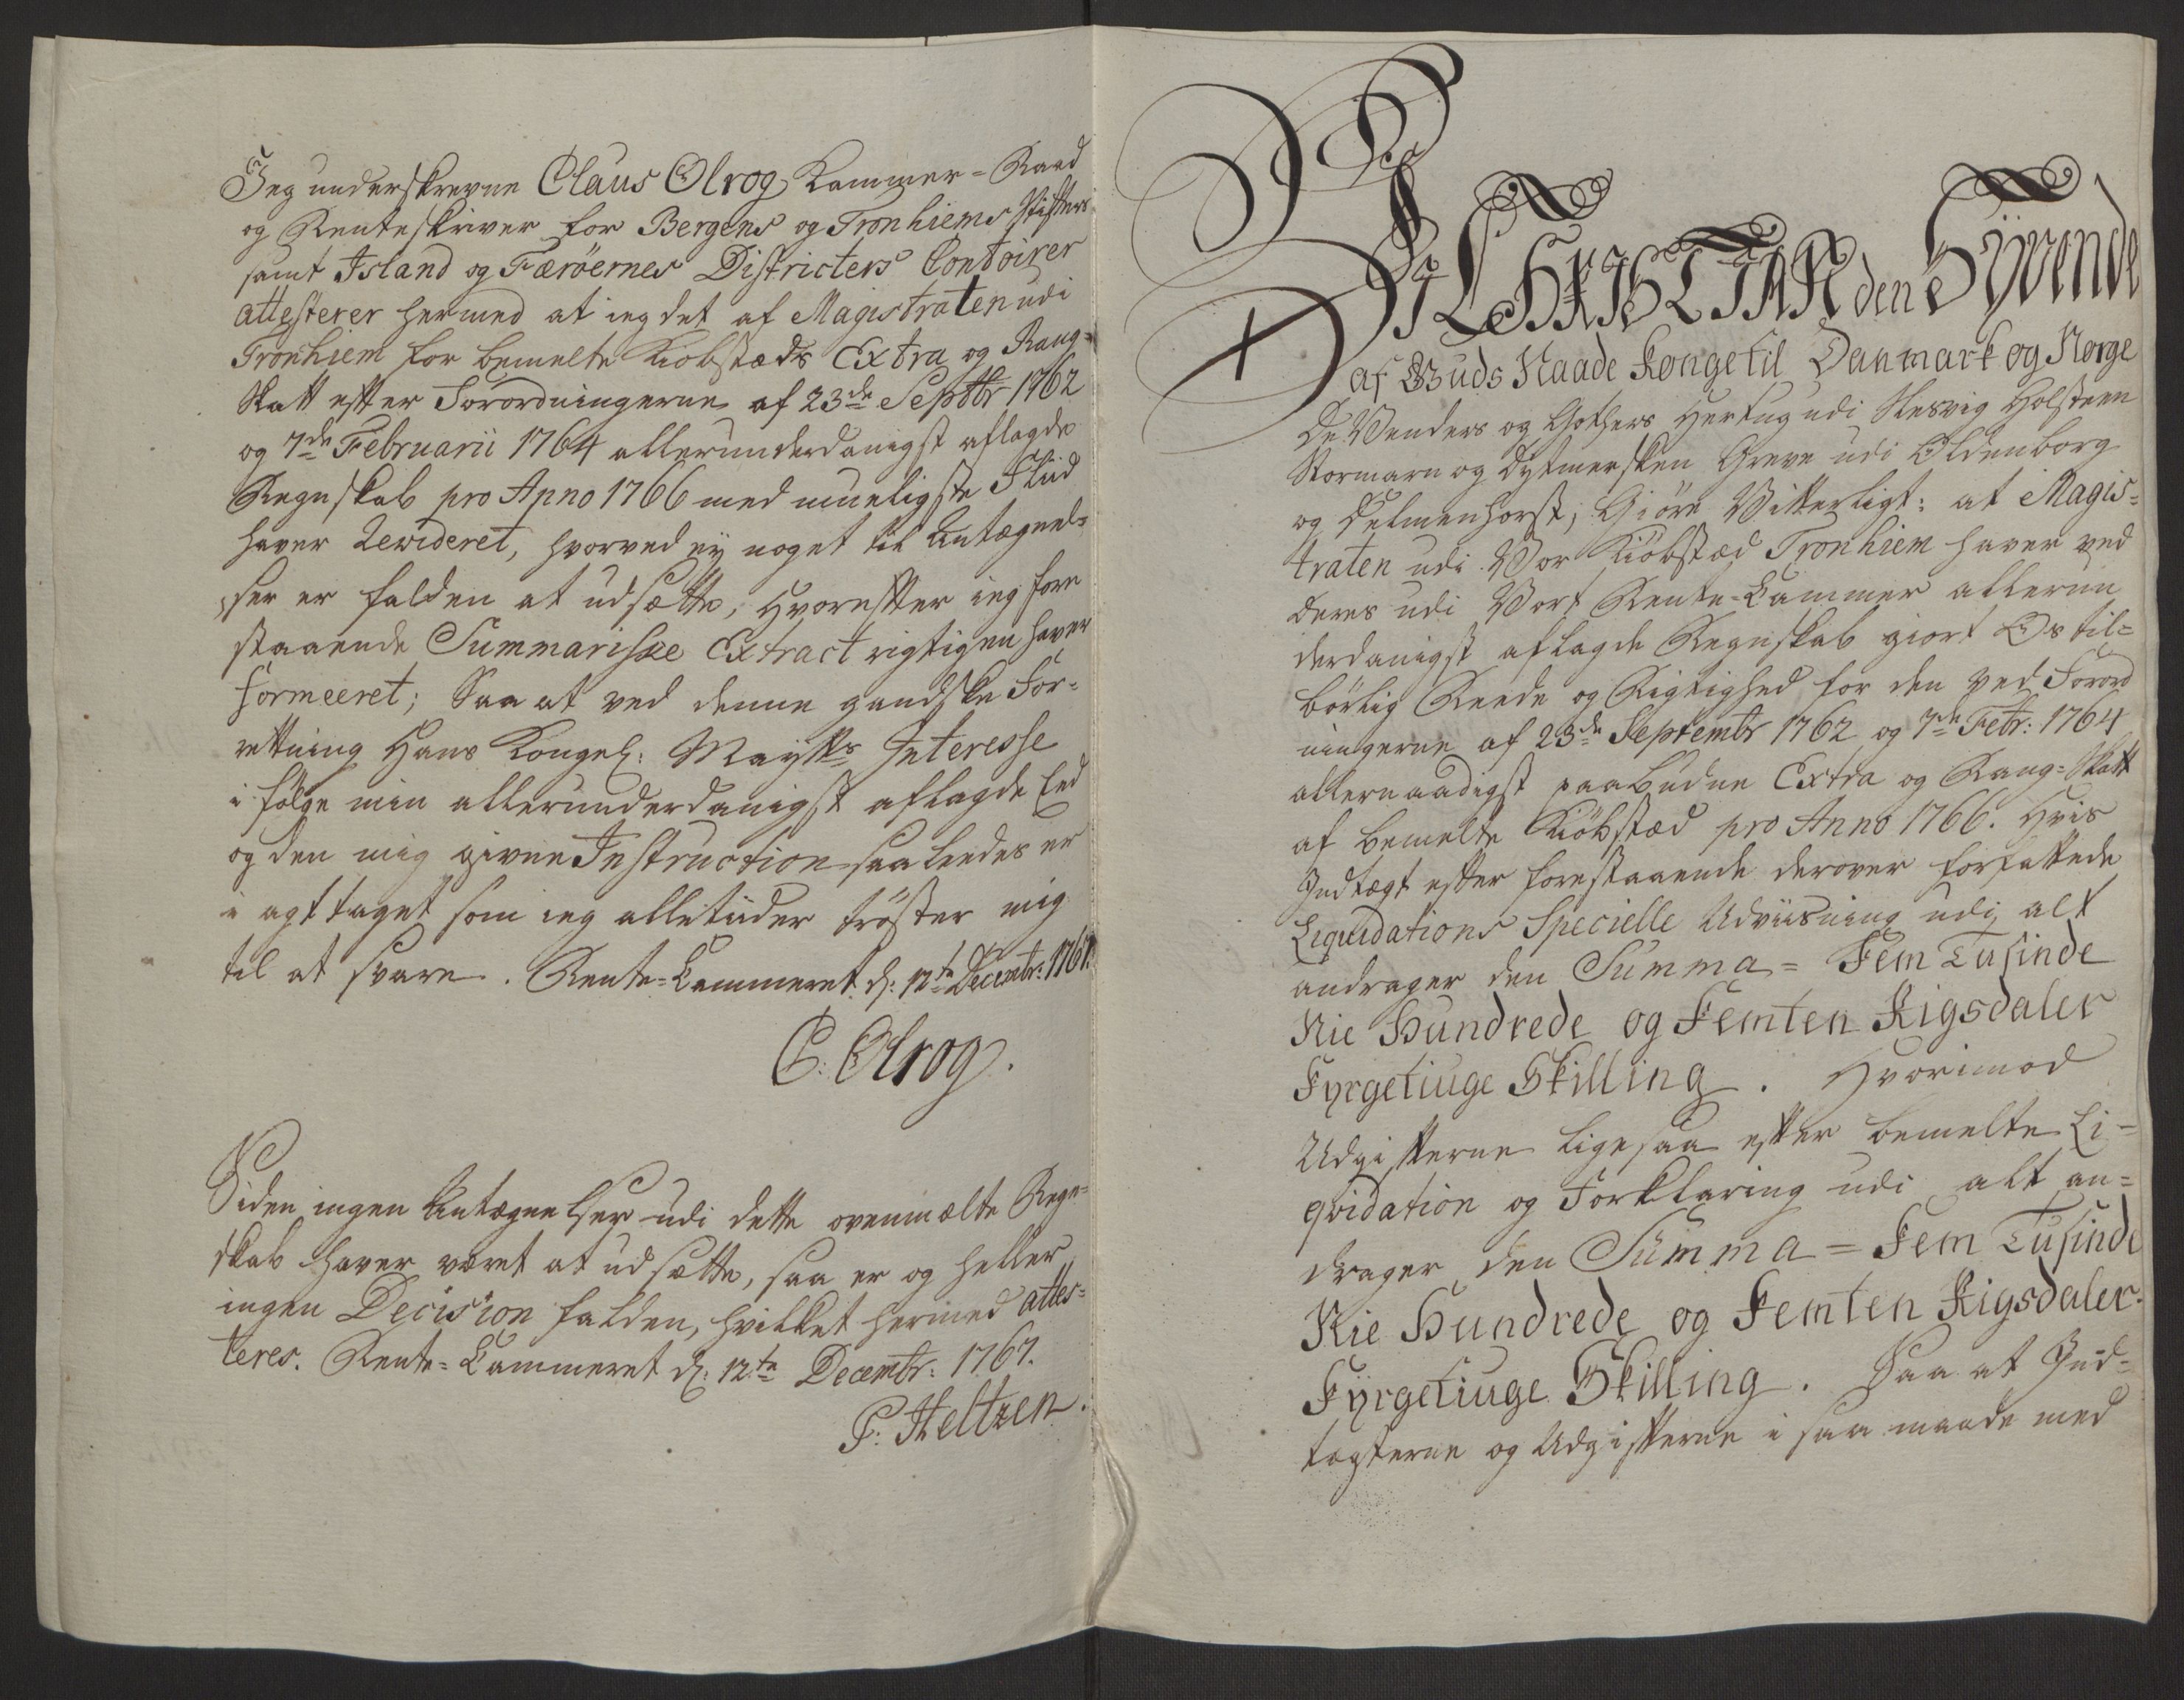 Jeg underskrevne Claus Olrog Kammer-Raad
og Renteskriver for Bergens og Tronhiems Stifters
samt Island og Færöernes Districters Contoirer
attesterer hermed at jeg det af Magistraten udi
Tronhiem for bemelte Kiobstæds Extra og Rang-
Skatt efter Forordningerne af 23de Septbr 1762
og 7de Februarii 1764 allerunderdanigst aflagde
Regnskab pro Anno 1766 med mueligste Fliid
haver Rewideret, hvorved ey noget til Antægnel-
ser er falden at udsætte, hvorefter jeg fore
staaende Summariske Extract rigtigen haver
formeeret; Saa at ved denne gandske For-
rettning Hans Kongel: Maysts Interesse
i følge min allerunderdanigst aflagde Eed
og den mig givne Instruction saaledes er
i agt taget som jeg alletiider tröster mig
til at svare. Rente-Cammeret d: 12te Decembr: 1767.
C: Olrog.
Siden ingen Antægnelser udi dette ovenmælte Regn-
skab haver været at udsætte, saa er og heller
ingen Decision falden, hvilket hermed attes-
teres. Rente-Cammeret d: 12te Decembr: 1767.
P: Heltzen.
Wi CHRISTIAN den Syvende
af Guds Naade Konge til Danmark og Norge
De Venders og Gothers Hertug udi Slesvig Holsteen
Stormarn og Dytmersken Greve udi Oldenborg
og Delmenhorst; Giöre Vitterligt: at Magis-
traten udi Vor Kiöbstæd Tronhiem haver ved
deres udi Vort Rente-Cammer allerun
derdanigst aflagde Regnskab giort Os til-
börlig Reede og Rigtighed for den ved Forord
ningerne af 23de Septembr 1762 og 7de Febr: 1764
allernaadigst paabudne Extra og Rang-Skatt
af bemelte Kiöbstæd pro Anno 1766. Hvis
Indtægt efter forestaaende derover forfattede
Liquidations Specielle Udviisning udi alt
andrager den Summa = Fem Tusinde
Nie Hundrede og Femten Rigsdaler
Fyrgetiuge Skilling. Hvorimod
Udgifterne ligesaa efter bemelte Li-
qvidation og Forklaring udi alt an-
drager den Summa = Fem Tusinde
Nie Hundrede og Femten Rigsdaler
Fyrgetiuge Skilling. Saa at Ind-
tægterne og Udgifterne i saa maade med